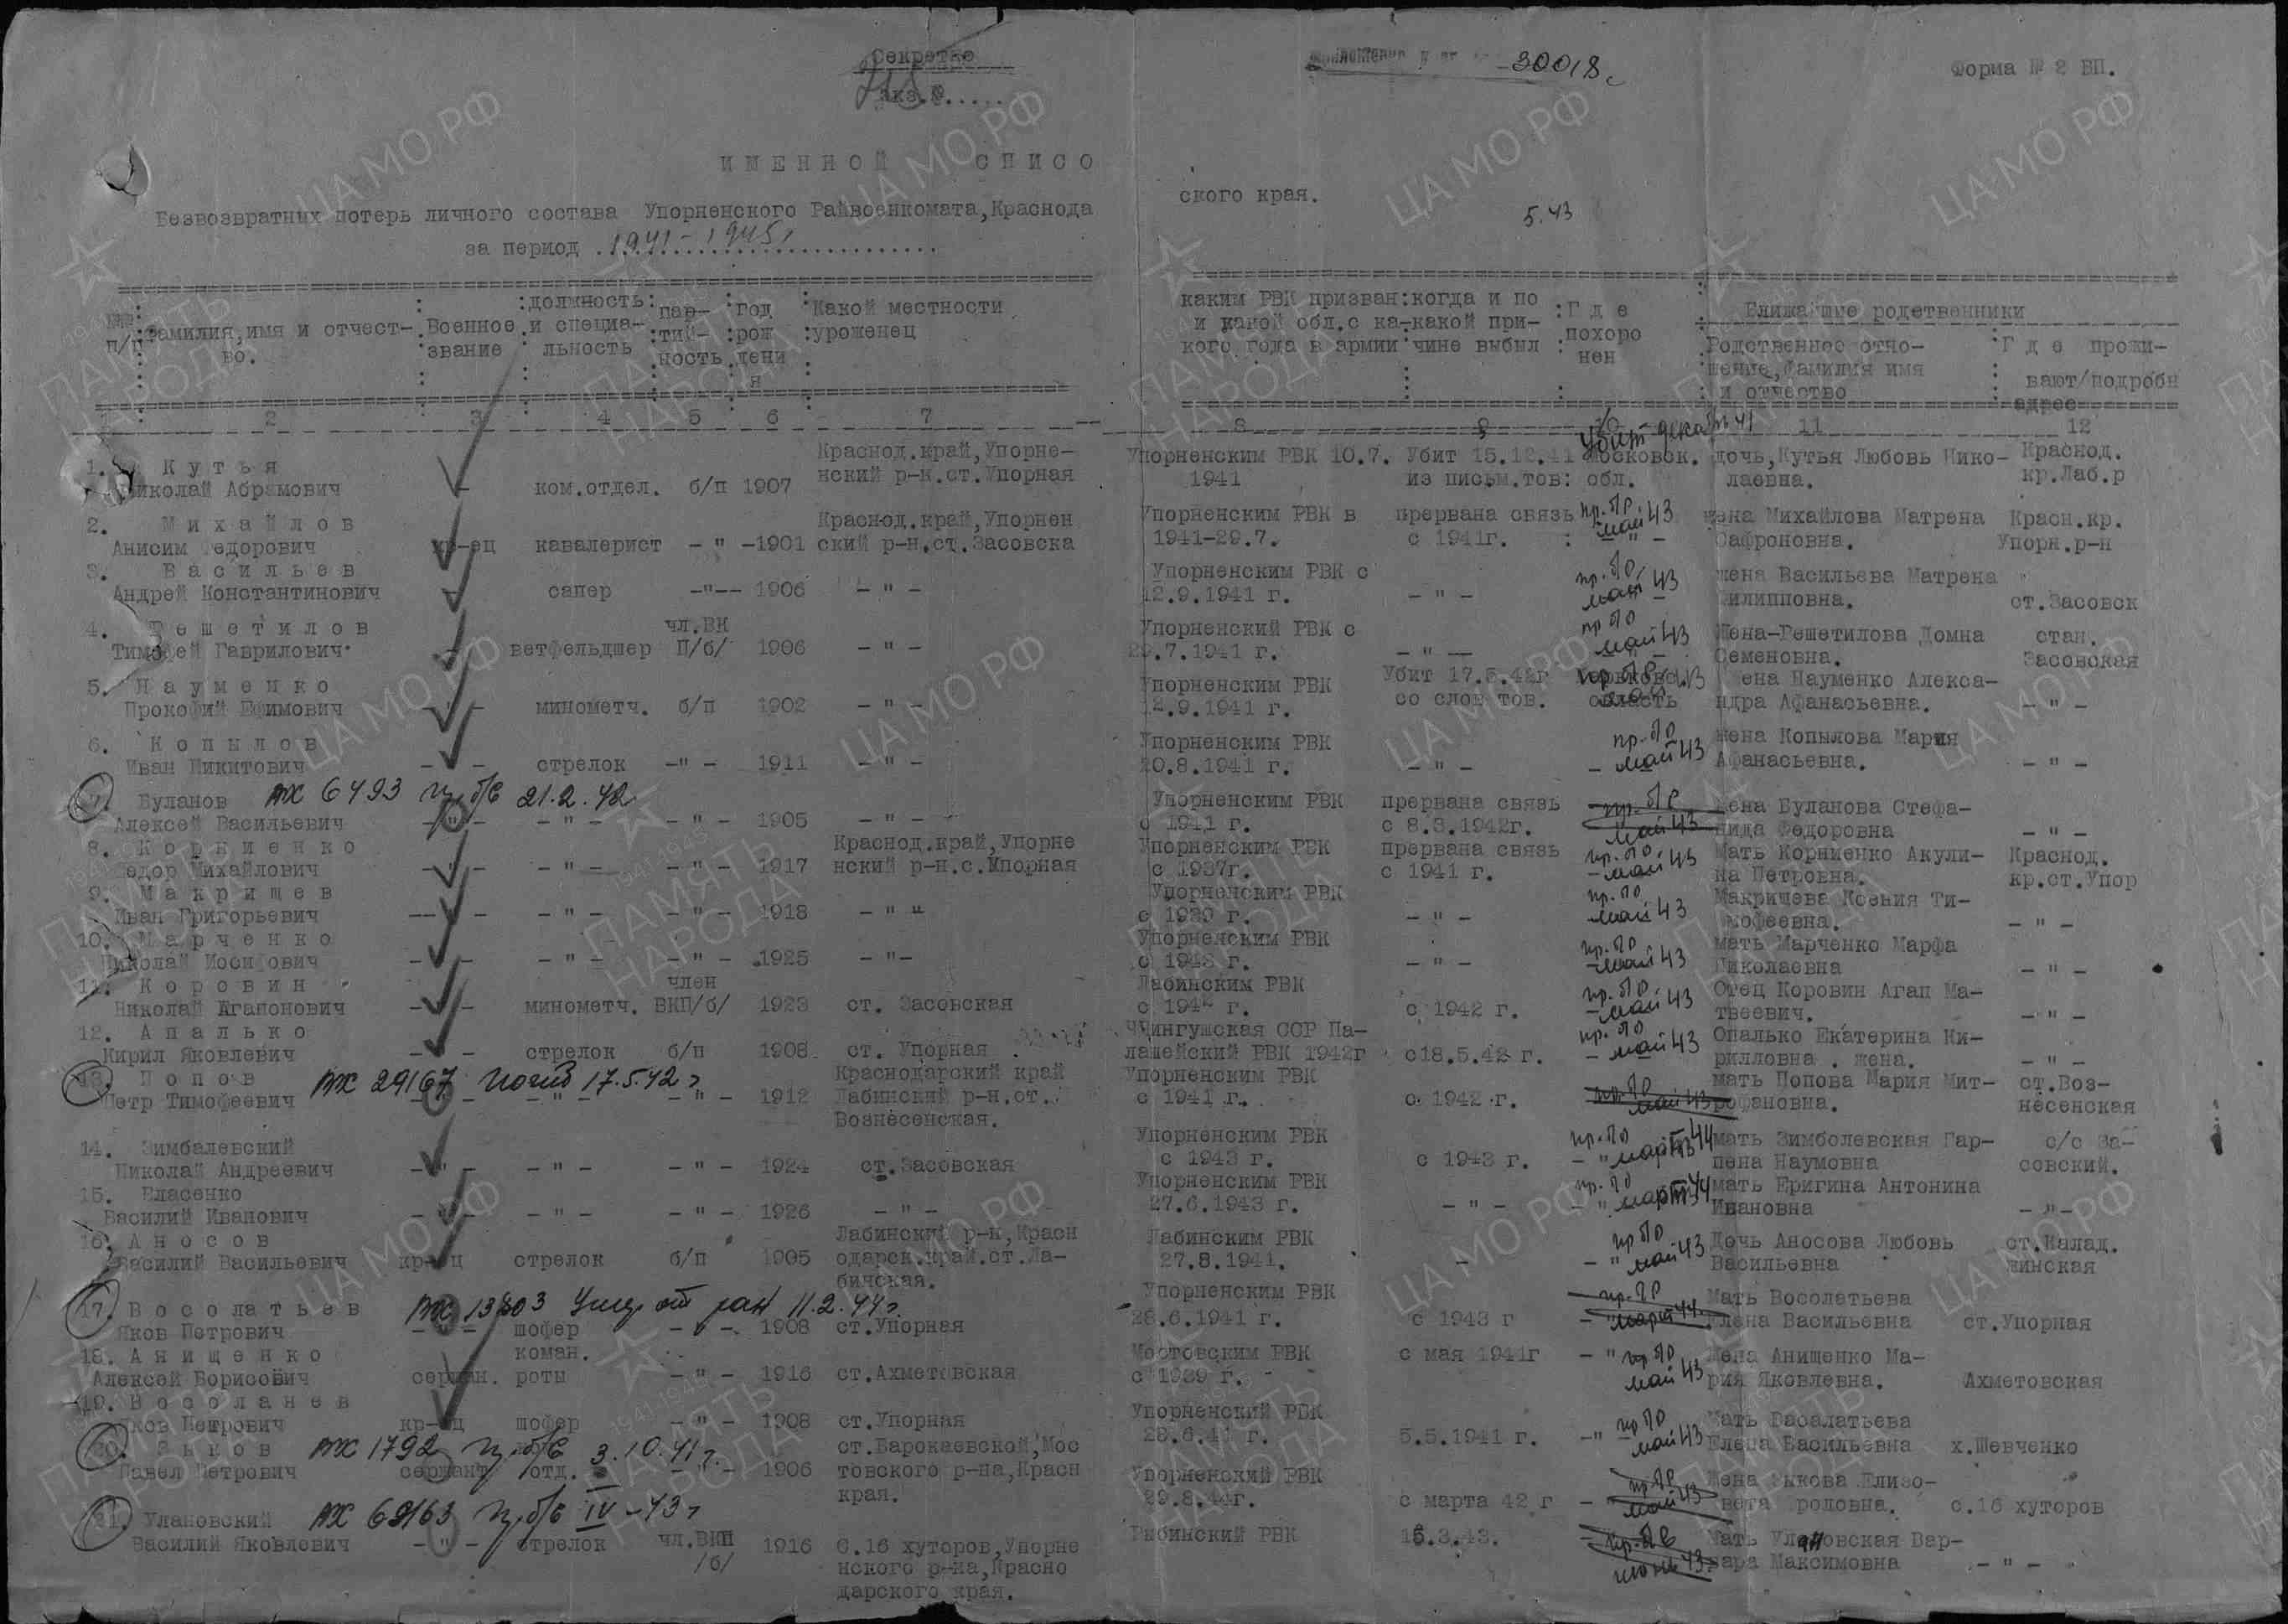 Секретно
Экз.№.....
30018с
Форма № 2 БП.
ИМЕННОЙ СПИСО
Безвозвратных потерь личного состава Упорненского Райвоенкомата,Краснода
ского края.
5.43
за период 1941-1945г
№№ п/п
Фамилия,имя и отчест-во.
Военное звание
должность и специа-льность
пар-тий-ность
год рож дени я
Какой местности уроженец
каким РВК призван и какой обл.с ка-кого года в армии
когда и по какой при-чине выбыл
Где похоро нен
Ближайшие родственники
Родственное отно-шение,фамилия имя и отчество
Где прожи-вают/подробн адрес
2 3 4 5 6 7 8 9 10 11 12
1. Кутья Краснод.край,Упорне- Упорненским РВК 10.7. Убит 15.12.41 Московск. дочь,Кутья Любовь Нико- Краснод.
Николай Абрамович ком.отдел. б/п 1907 нский р-н.ст.Упорная 1941 из письм.тов: обл. лаевна. кр.Лаб.р
2. Михайлов Краснод.край,Упорнен Упорненским РВК в прервана связь пр.б/в май 43 жена Михайлова Матрена Красн.кр.
Анисим Федорович кр-ец кавалерист - " -1901 ский р-н.ст.Засовска 1941-29.7. с 1941г. : - " - Сафроновна. Упорн.р-н
3. Васильев Упорненским РВК с май 43 жена Васильева Матрена "
Андрей Константинович сапер -"-- 1906 - " - 12.9.1941 г. - " - Филипповна. ст.Засовск
4. Решетилов чл.ВК Упорненский РВК с май 43 Жена-Решетилова Домна стан.
Тимофей Гаврилович ветфельдшер П/б/ 1906 - " - 29.7.1941 г. - " - Семеновна. Засовская
5. Науменко Упорненским РВК Убит 17.5.42г жена Науменко Алекса-
Прокофий Ефимович минометч. б/п 1902 - " - 12.9.1941 г. со слов тов. область ндра Афанасьевна. - " -
6. Копылов Упорненским РВК май 43 жена Копылова Мария
Иван Никитович стрелок -" - 1911 - " - 20.8.1941 г. - " - Афанасьевна. - " -
7. Буланов вх 6493 пр.б/в 21.2.42 Упорненским РВК прервана связь жена Буланова Стефа-
Алексей Васильевич - " - - " - - " - 1905 - " - с 1941 г. с 8.3.1942г. май 43 нида Федоровна - " -
8. Корниенко Краснод.край,Упорне Упорненским РВК прервана связь май 43 Мать Корниенко Акули- Краснод.
Федор Михайлович - " - - " - 1917 нский р-н.с.Упорная с 1937г. с 1941 г. на Петровна. кр.ст.Упор
9. Макрищев Упорненским РВК май 43 Макрищева Ксения Ти-
Иван Григорьевич - " - - " - 1918 - " - с 1939 г. - " - мофеевна. - " -
10. Марченко Упорненским РВК май 43 мать Марченко Марфа
Николай Иосифович - " - - " - 1925 - "- - " - Николаевна - " -
11. Коровин член Лабинским РВК май 43 Отец Коровин Агап Ма-
Николай Агапонович минометч. ВКП/б/ 1923 ст. Засовская с 1942 г. с 1942 г. твеевич. - " -
12. Апалько Ччингушская ССР Па- май 43 Опалько Екатерина Ки-
Кирил Яковлевич стрелок б/п 1908 ст. Упорная лашейский РВК 1942г с18.5.42 г. рилловна . жена. - " -
13. Попов вх 29167 Погиб 17.5.42г Краснодарский край Упорненским РВК мать Попова Мария Мит- ст.Воз-
Петр Тимофеевич - " - - " - 1912 Лабинский р-н.ст. с 1941 г. с 1942 г. май 43 рофановна. несенская
Вознесенская.
14. Зимбалевский Упорненским РВК март 44 мать Зимболевская Гар- с/с За-
Николай Андреевич - " - - " - - " - 1924 ст.Засовская с 1943 г. с 1943 г. пена Наумовна совский.
15. Власенко Упорненским РВК март 44 мать Еригина Антонина
Василий Иванович - " - - " - - " - 1926 - " - 27.6.1943 г. - " - Ивановна - "-
16. Аносов Лабинский р-н,Красн Лабинским РВК май 43 Дочь Аносова Любовь ст.Калад.
Василий Васильевич кр-ец стрелок б/п 1905 одарск.край.ст.Ла- 27.8.1941. - Васильевна жинская
бинская.
17. Восолатьев вх 13803 Умер от ран 11.2.44г. Упорненским РВК Мать Восолетьева
Яков Петрович шофер - " - 1908 ст.Упорная 28.6.1941 г. с 1943 г март 44 Елена Васильевна ст.Упорная
18. Анищенко коман. Мостовским РВК с мая 1941г - " май 43 Жена Анищенко Ма-
Алексей Борисович сержан. роты - " - 1916 ст.Ахметовская с 1939 г. рия Яковлевна. Ахметовская
19. Восоланев Упорненский РВК Мать Васалатьева
Яков Петрович кр-ец шофер - " - 1908 ст.Упорная 28.6.41 г. 5.5.1941 г. май 43 Елена Васильевна х.Шевченко
20. Зыков вх 1792 пр.б/в 3.10.41г. ст.Барокаевской,Мос Упорненский РВК Жена Зыкова Елизо-
Павел Петрович сержант отд. - " - 1906 товского р-на,Красн 29.8.44г. с марта 42 г май 43 вета с.16 хуторов
края.
21. Улановский вх 69163 пр.б/в IV-43г Рыбинский РВК 15.3.43. Мать Улановская Вар-
Василий Яковлевич - " - стрелок чл.ВКП /б/ 1916 с.16 хуторов,Упорне июнь 43 вара Максимовна - " -
нского р-на,Красно
дарского края.
ЦАМО РФ
ПАМЯТЬ НАРОДА
1941-1945